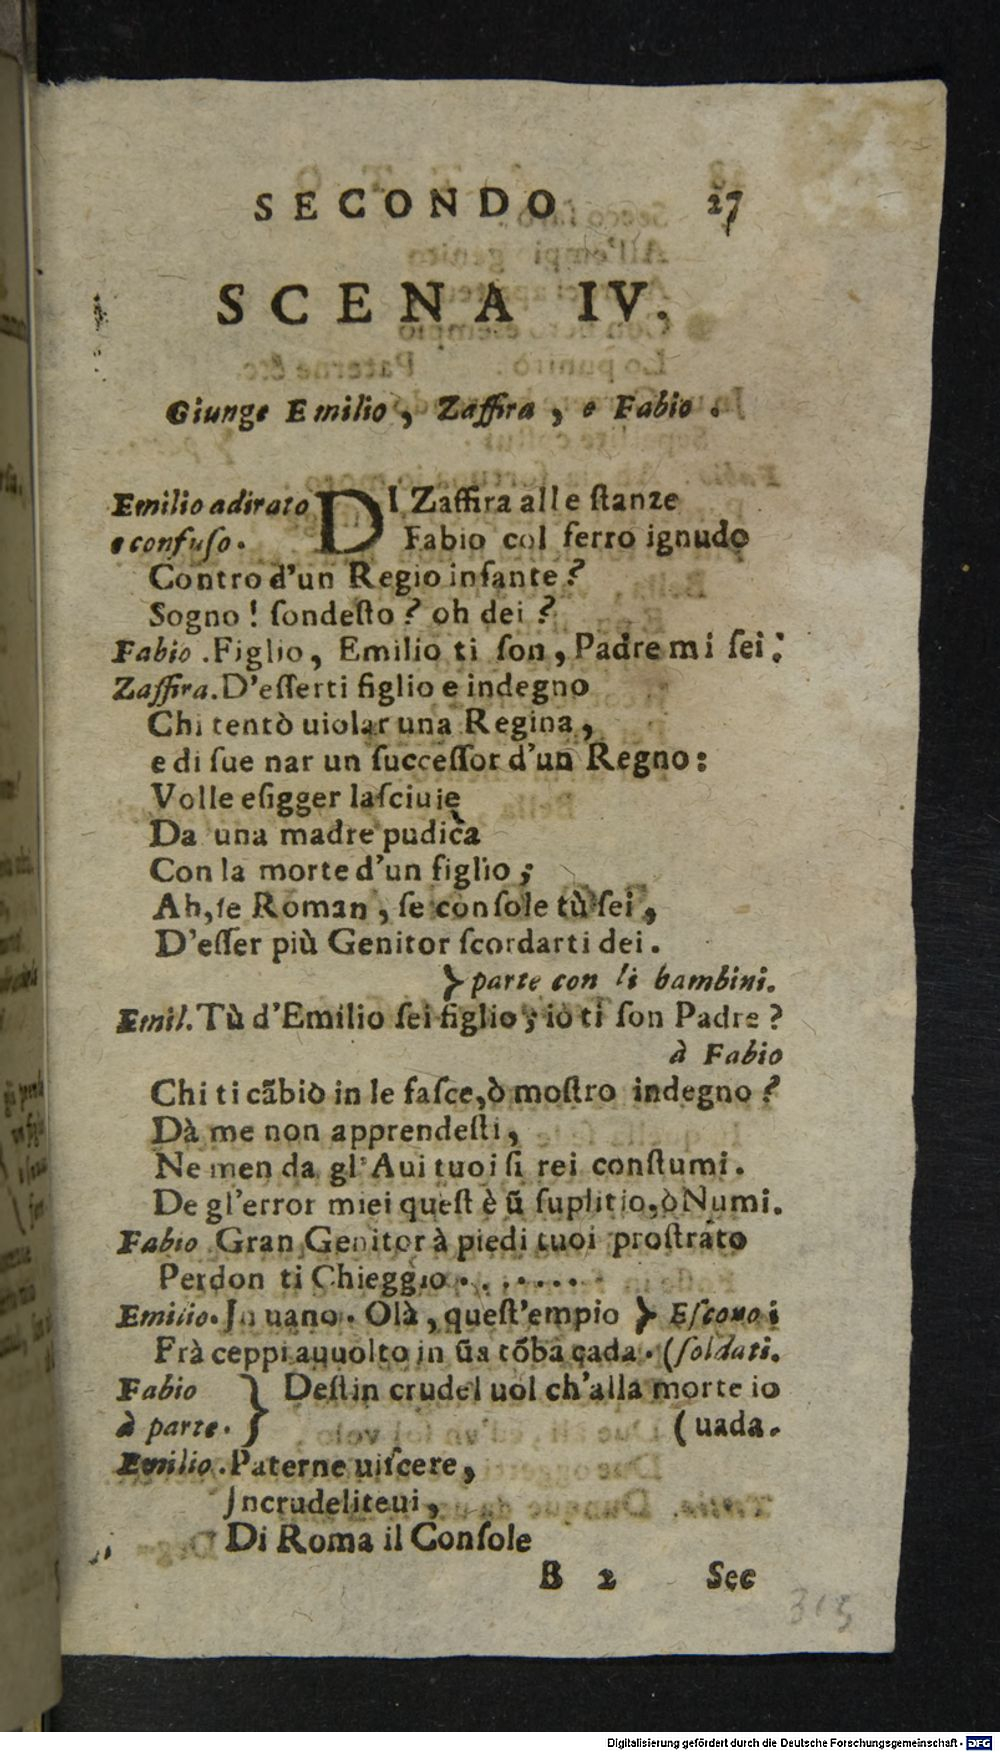 SECONDO 27
SCENA IV.
Giunge Emilio, Zaffira, e Fabio.
Emilio adirato DI Zaffira alle ſtanze
e confuſo. Fabio col ferro ignudo
Contro d'un Regio infante?
Sogno! ſondeſto? oh dei?
Fabio. Figlio, Emilio ti ſon, Padre mi ſei:
Zaffira. D'eſſerti figlio e indegno
Chi tentò uiolar una Regina,
e di ſue nar un ſucceſſor d'un Regno:
Volle eſigger laſciuie
Da una madre pudica
Con la morte d'un figlio;
Ah, ſe Roman, ſe conſole tù ſei,
D'eſſer più Genitor ſcordarti dei.
}parte con li bambini.
Emil. Tù d'Emilio ſei figlio; io ti ſon Padre?
à Fabio
Chi ti cãbiò in le faſce, ò moſtro indegno?
Dà me non apprendeſti,
Ne men da gl'Aui tuoi ſi rei conſtumi.
De gl'error miei queſt è ũ ſuplitio, ò Numi.
Fabio Gran Genitor à piedi tuoi proſtrato
Perdon ti Chieggio.......
Emilio. Jn uano. Olà, queſt'empio } Eſcono i
Frà ceppi auuolto in ũa tõba cada. (ſoldati.
Fabio } Deſtin crudel uol ch'alla morte io
à parte. } (uada.
Emilio. Paterne uiſcere,
Jncrudeliteui,
Di Roma il Conſole
B 2 Sec
315
Digitalisierung gefördert durch die Deutsche Forschungsgemeinschaft - DFG